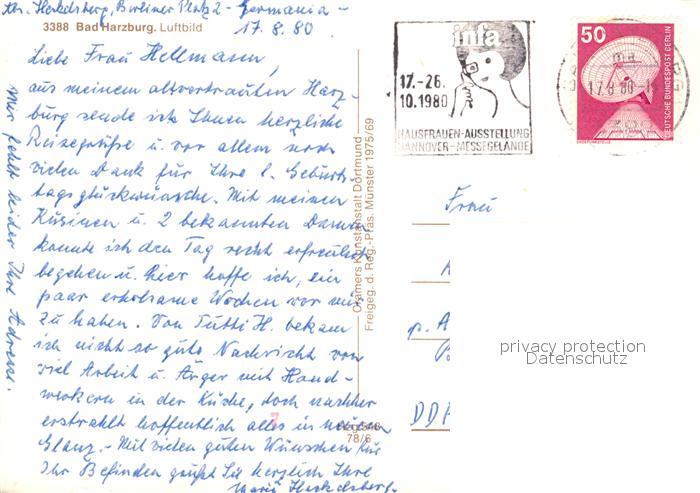 Berliner Platz 2 - Germania -
17. 8. 80
3388 Bad Harzburg. Luftbild
Liebe Frau Hellmann,
aus meinem altvertrauten Harz-
burg sende ich Ihnen herzliche
Reisegrüße u. vor allem noch
vielen Dank für Ihre l. Geburts-
tagsglückwünsche. Mit meinen
Kusinen u. 2 bekannten Damen
konnte ich den Tag recht erfreulich
begehen u. hier hoffe ich, ein
paar erholsame Wochen vor mir
zu haben. Von Tutti H. bekam
ich nicht so gute Nachricht von
viel Arbeit u. Ärger mit Hand-
werkern in der Küche, doch nachher
erstrahlt hoffentlich alles in neuem
Glanz. - Mit vielen guten Wünschen für
Ihr Befinden grüßt Sie herzlich Ihre
Mir fehlt leider Ihre Adresse.
Cramers Kunstanstalt Dortmund
Freigeg. d. Reg.-Präs. Münster 1975/69
78/6
infa
17.-26.
10.1980
HAUSFRAUEN-AUSSTELLUNG
HANNOVER-MESSEGELÄNDE
50
DEUTSCHE BUNDESPOST BERLIN
ERDEFUNKSTELLE
Frau
p. A
DDR
privacy protection
Datenschutz